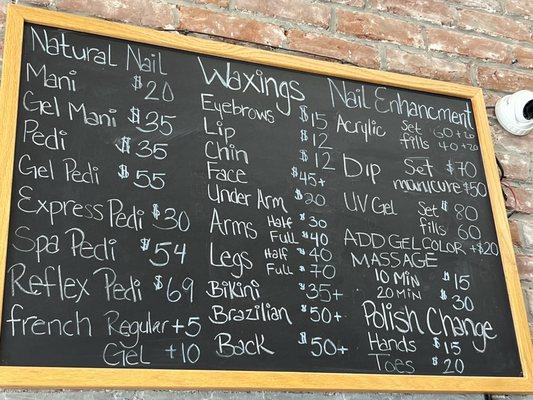 Natural Nail
Mani $20
Gel Mani $35
Pedi $35
Gel Pedi $55
Express Pedi $30
Spa Pedi $54
Reflex Pedi $69
french Regular +5
Gel +10
Waxings
Eyebrows $15
Lip $12
Chin $12
Face $45+
Under Arm $20
Arms Half $30
Full $40
Legs Half $40
Full $70
Bikini $35+
Brazilian $50+
Back $50+
Nail Enhancment
Acrylic Set 60+20
fills 40+20
Dip Set $70
manicure $50
UV Gel Set $80
fills 60
ADD GEL COLOR +$20
MASSAGE
10 MIN $15
20 MIN $30
Polish Change
Hands $15
Toes $20